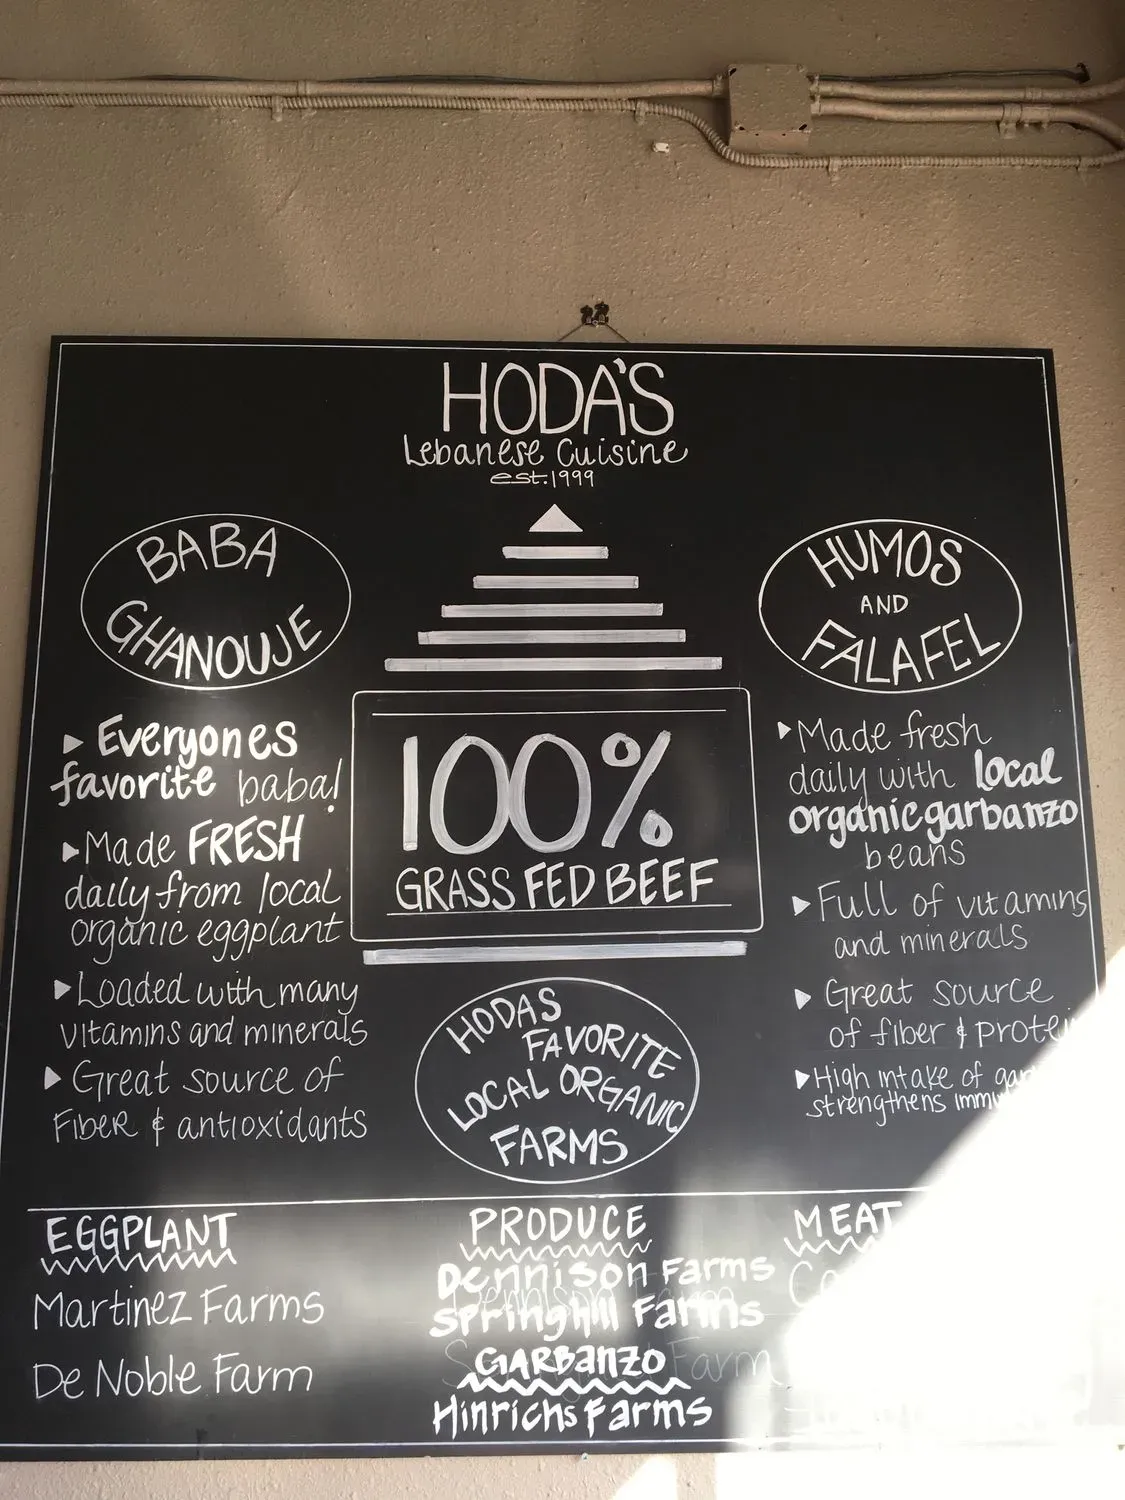 HODA'S
Lebanese Cuisine
est. 1999
BABA
GHANOUJE
▸ Everyones
favorite baba!
▸ Made FRESH
daily from local
organic eggplant
▸ Loaded with many
vitamins and minerals
▸ Great source of
Fiber & antioxidants
100%
GRASS FED BEEF
HUMOS
AND
FALAFEL
▸ Made fresh
daily with local
organic garbanzo
beans
▸ Full of vitamins
and minerals
▸ Great source
of fiber & protein
▸ High intake of
strengthens
HODAS
FAVORITE
LOCAL ORGANIC
FARMS
EGGPLANT
Martinez Farms
De Noble Farm
PRODUCE
Dennison Farms
Springhill Farms
GARBANZO
Hinrichs Farms
MEAT